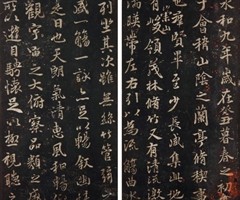 永和九年歲在癸丑暮春之初
于會稽山陰之蘭亭脩稧事
也羣賢畢至少長咸集此地
峻領茂林脩竹又有清流激
湍暎帶左右引以為流觴曲
列坐其次雖無絲竹管絃
盛一觴一詠亦足以暢叙幽
是日也天朗氣清惠風和暢
觀宇宙之大俯察品類之盛
以遊目騁懷足以極視聽